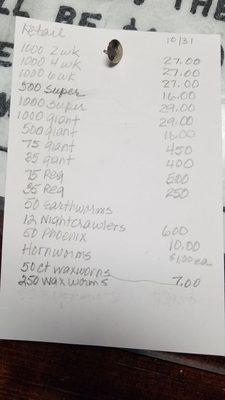 Retail 10/31
1000 2wk 27.00
1000 4wk 27.00
1000 6wk 27.00
500 super 16.00
1000 super 29.00
1000 giant 29.00
500 giant 16.00
75 giant 450
35 giant 400
75 Reg 500
35 Reg 250
50 Earthworms
12 Nightcrawlers 600
50 Phoenix 10.00
Hornworms $1.00 ea
50 ct waxworms
250 wax worms 7.00